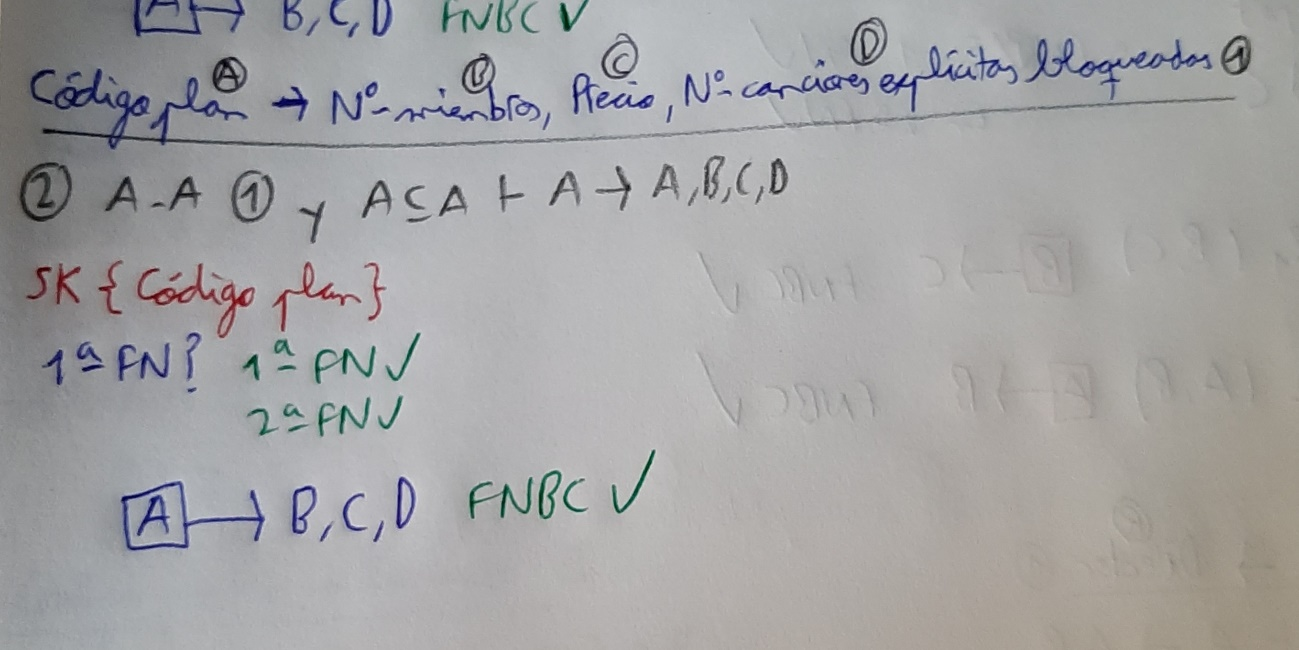 [A] → B, C, D FNBC ✓
Código plan Ⓐ → Nº miembros Ⓑ, Precio Ⓒ, Nº canciones explícitas bloqueadas Ⓓ ①
② A-A ① y A⊆A ⊢ A → A,B,C,D
SK {Código plan}
1ª FN? 1ª FN ✓
2ª FN ✓
[A] → B, C, D FNBC ✓